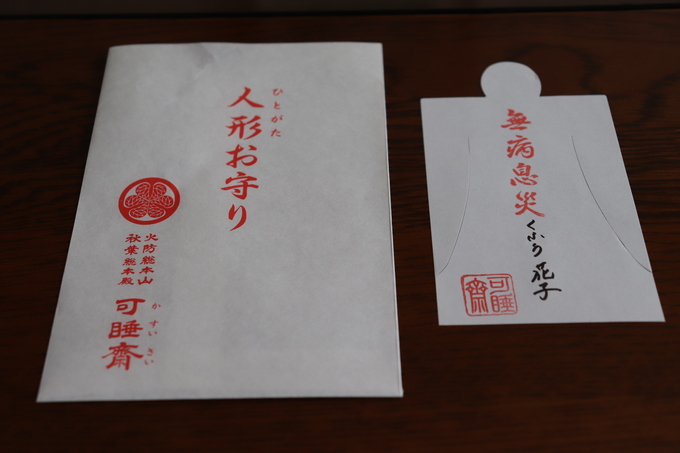 ひとがた
人形お守り
火防総本山
秋葉総本殿
か すい さい
可睡齋
無病息災
くふう 花子
可睡
齋